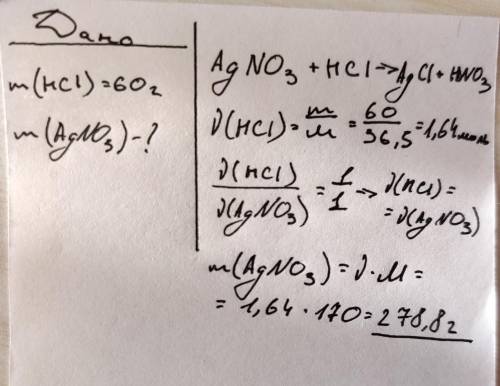 Дано
m(HCl)=60г
m(AgNO₃)-?
AgNO₃+HCl→AgCl+HNO₃
ν(HCl)=m/M=60/36,5=1,64моль
ν(HCl)/ν(AgNO₃)=1/1→ν(HCl)=
=ν(AgNO₃)
m(AgNO₃)=ν·M=
=1,64·170=278,8г